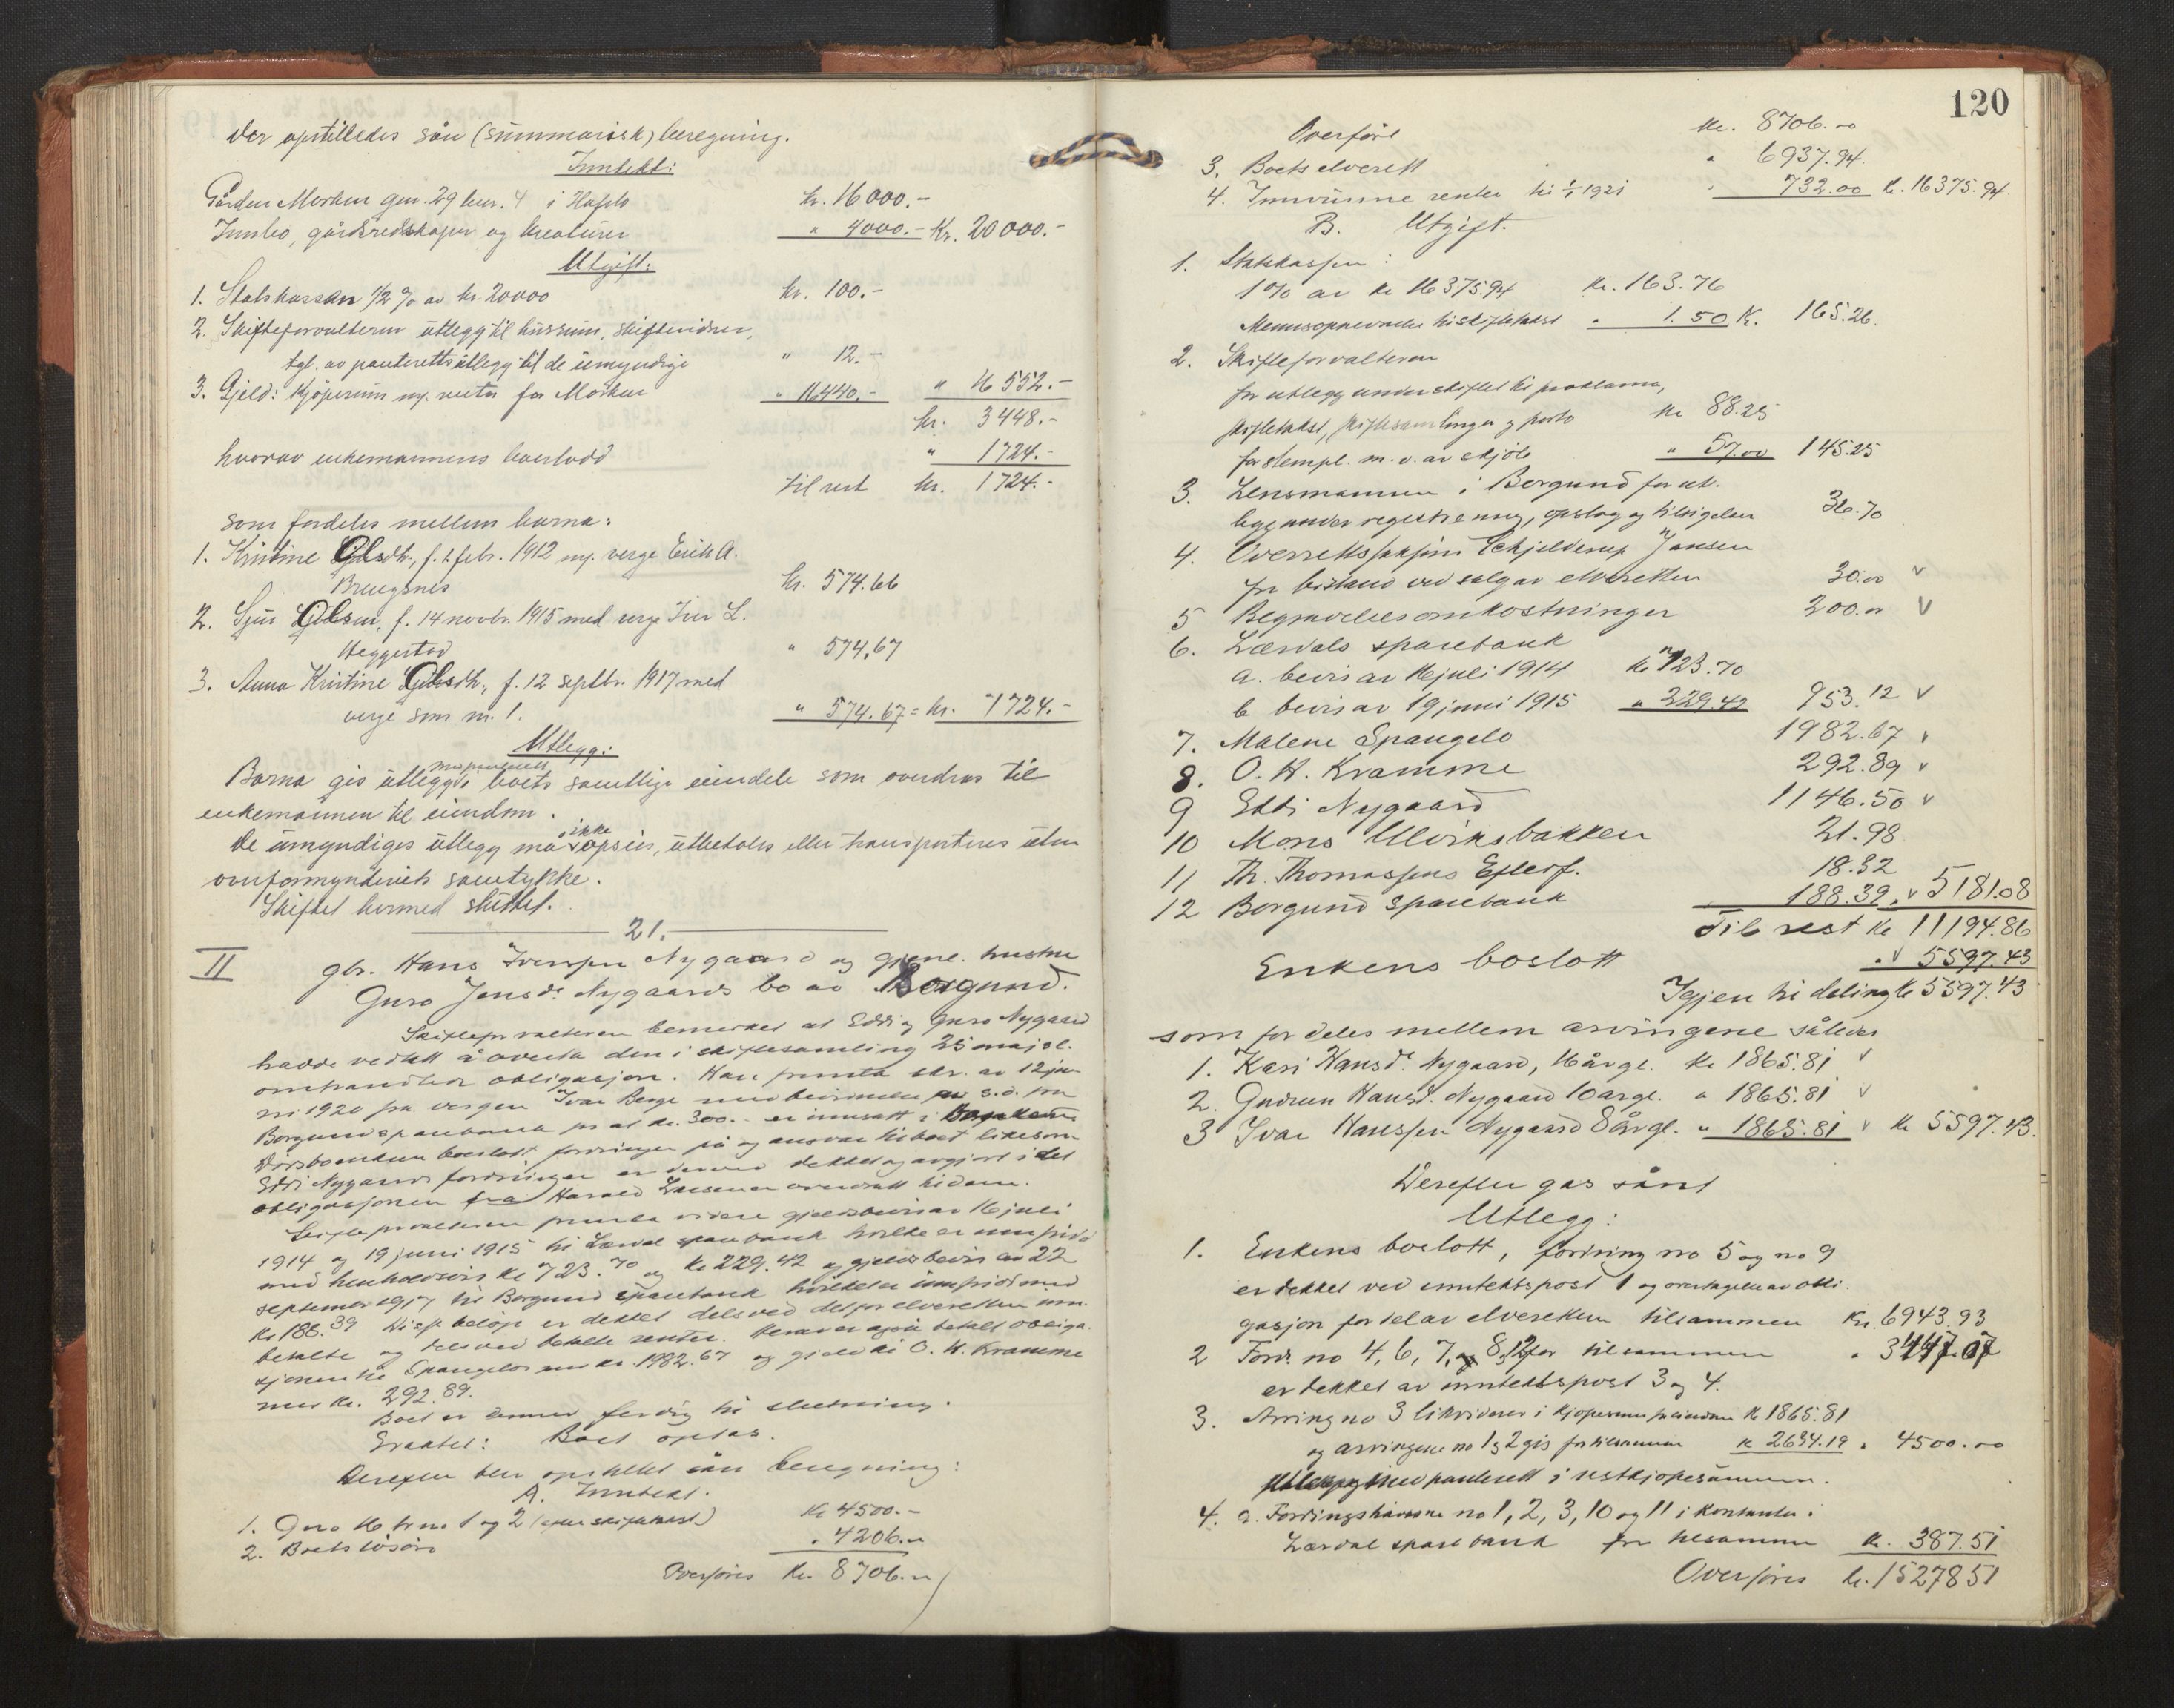 Der opstilledes sån (summarisk) beregning.
Inntekt:
Gården Morken gnr. 29 bnr. 4 i Hafslo kr. 16000.-
Innbo, gårdsredskaper og kreaturer " 4000.- Kr. 20000.-
Utgift:
1. Statskassen 1/2 % av kr. 20000 kr. 100.-
2. Skifteforvalteren utlegg til husrum, skiftevidner,
tgl. av panterettsutlegg til de umyndige " 12.-
3. Gjeld: Kjøpesum m. renter for Morken " 16440.- " 16552.-
kr. 3448.-
hvorav enkemannens boslodd " 1724.-
til rest kr. 1724.-
som fordeles mellem barna:
1. Kristine Olsdtr., f. 1 febr. 1912 m. verge Erik A.
kr. 574.66
2. Sjur Olsen, f. 14 novbr. 1915 med verge Iver L.
Heggestad " 574,67
3. Anna Kristine Olsdtr., f. 12 septbr. 1917 med
verge som nr. 1. " 574.67 = kr. 1724.-
Utlegg:
Barna gis utlegg med panterett i boets samtlige eiendele som overdras til
enkemannen til eiendom.
De umyndiges utlegg må ikke opsies, utbetales eller transporteres uten
overformynderiets samtykke.
Skiftet hermed sluttet.
21.
II gbr. Hans Iverssen Nygaard og gjenl. hustru
Guro Jensdr. Nygaards bo av Borgund.
Skifteforvalteren bemerket at Eddi og Guro Nygaard
hadde vedtatt å overta den i skiftesamling 25 mai sl.
omhandlede obligasjon. Han fremla skr. av 12 ju-
ni 1920 fra vergen Ivar Berge med bevidnelse s.d. fra
Borgund sparebank for at kr. 300.- er innsatt i
boslott, fordringer på og ansvar til boet likesom
Eddi Nygaards fordringer er derved dekket og avgjort idet
obligasjonen fra Harald Larsen er overdratt til dem.
Skifteforvalteren fremla videre gjeldsbevis av 16 juli
1914 og 19 juni 1915 til Lærdal sparebank hvilke er innfridd
med henholdsvis kr. 723.70 og kr. 229.42 og gjeldsbevis av 22
september 1917 til Borgund sparebank hvilket er innfridd med
kr. 188.39. Disse beløp er dekket dels ved det for elveretten inn-
betalte og dels ved betalte renter. Herav er også betalt obliga-
sjonen til Spangelo med kr. 1982.67 og gjeld til O. H. Kramme
med kr. 292.89.
Boet er dermed ferdig til slutning.
Eraktet: Boet optas.
Derefter blev opstillet sån beregning:
A. Inntekt.
1. Gnr. 16 br no 1 og 2 (efter skiftetakst) Kr. 4500.-
2. Boets løsøre " 4206.-
Overføres Kr. 8706.-
120
Overført Kr. 8706.00
3. Boets elverett " 6937.94.
4. Innvunne renter til 1/1 1921 " 732.00 Kr. 16375.94.
B. Utgift.
1. Statskassen:
1% av kr 16375.94 Kr. 163.76
Mennsopnevnelse til skiftetakst " 1.50 Kr. 165.26.
2. Skifteforvalteren
for utlegg under skiftet til proklama,
skiftetakst, skiftesamlinger og porto Kr 88.25
for stempl. m. v. av skjøte " 57.00 145.25
3. Lensmannen i Borgund for ut-
legg under registrering, opslag og tilsigelser 36.70
4. Overrettssakfører Schjelderup Jansen
for bistand ved salg av elveretten 30.00 v
5 Begravelsesomkostninger 200.00 v
6. Lærdals sparebank
a. bevis av 16 juli 1914 Kr 723.70
b bevis av 19 juni 1915 " 229.42 953.12 v
7. Malene Spangelo 1982.67 v
8. O. H. Kramme 292.89 v
9 Eddi Nygaard 1146.50 v
10 Mons Ulviksbakken 21.98
11 Th. Thomassens Efterf. 18.32
12 Borgund Sparebank 188.39 v 5181.08
Til rest kr 11194.86
Enkens boslott " v 5597.43
Igjen til deling kr 5597.43
som fordeles mellem arvingene således
1. Kari Hansdr. Nygaard, 16 årgl. Kr 1865.81 v
2. Gudrun Hansd. Nygaard 10 årgl. " 1865.81 v
3 Ivar Hanssen Nygaard 8 årgl. " 1865.81 v Kr 5597.43.
Derefter gas sånt
Utlegg:
1. Enkens boslott, fordring no 5 og no 9
er dekket ved inntektspost 1 og overtagelse av obli-
gasjon for del av elveretten tilsammen Kr. 6943.93
2 Ford. no 4, 6, 7, 8, 12 for tilsammen " 3447.07
er dekket av inntektspost 3 og 4.
3. Arving no 3 likviderer i kjøpesum for eiendom Kr 1865.81
og arvingene no 1 og 2 gis for tilsammen Kr 2634.19 " 4500.00
utlegg med panterett i restkjøpesummen.
4. a. Fordringshaverne no 1, 2, 3, 10 og 11 i kontanter i
Lærdal sparebank for tilsammen Kr. 387.51
Overføres Kr. 15278 51